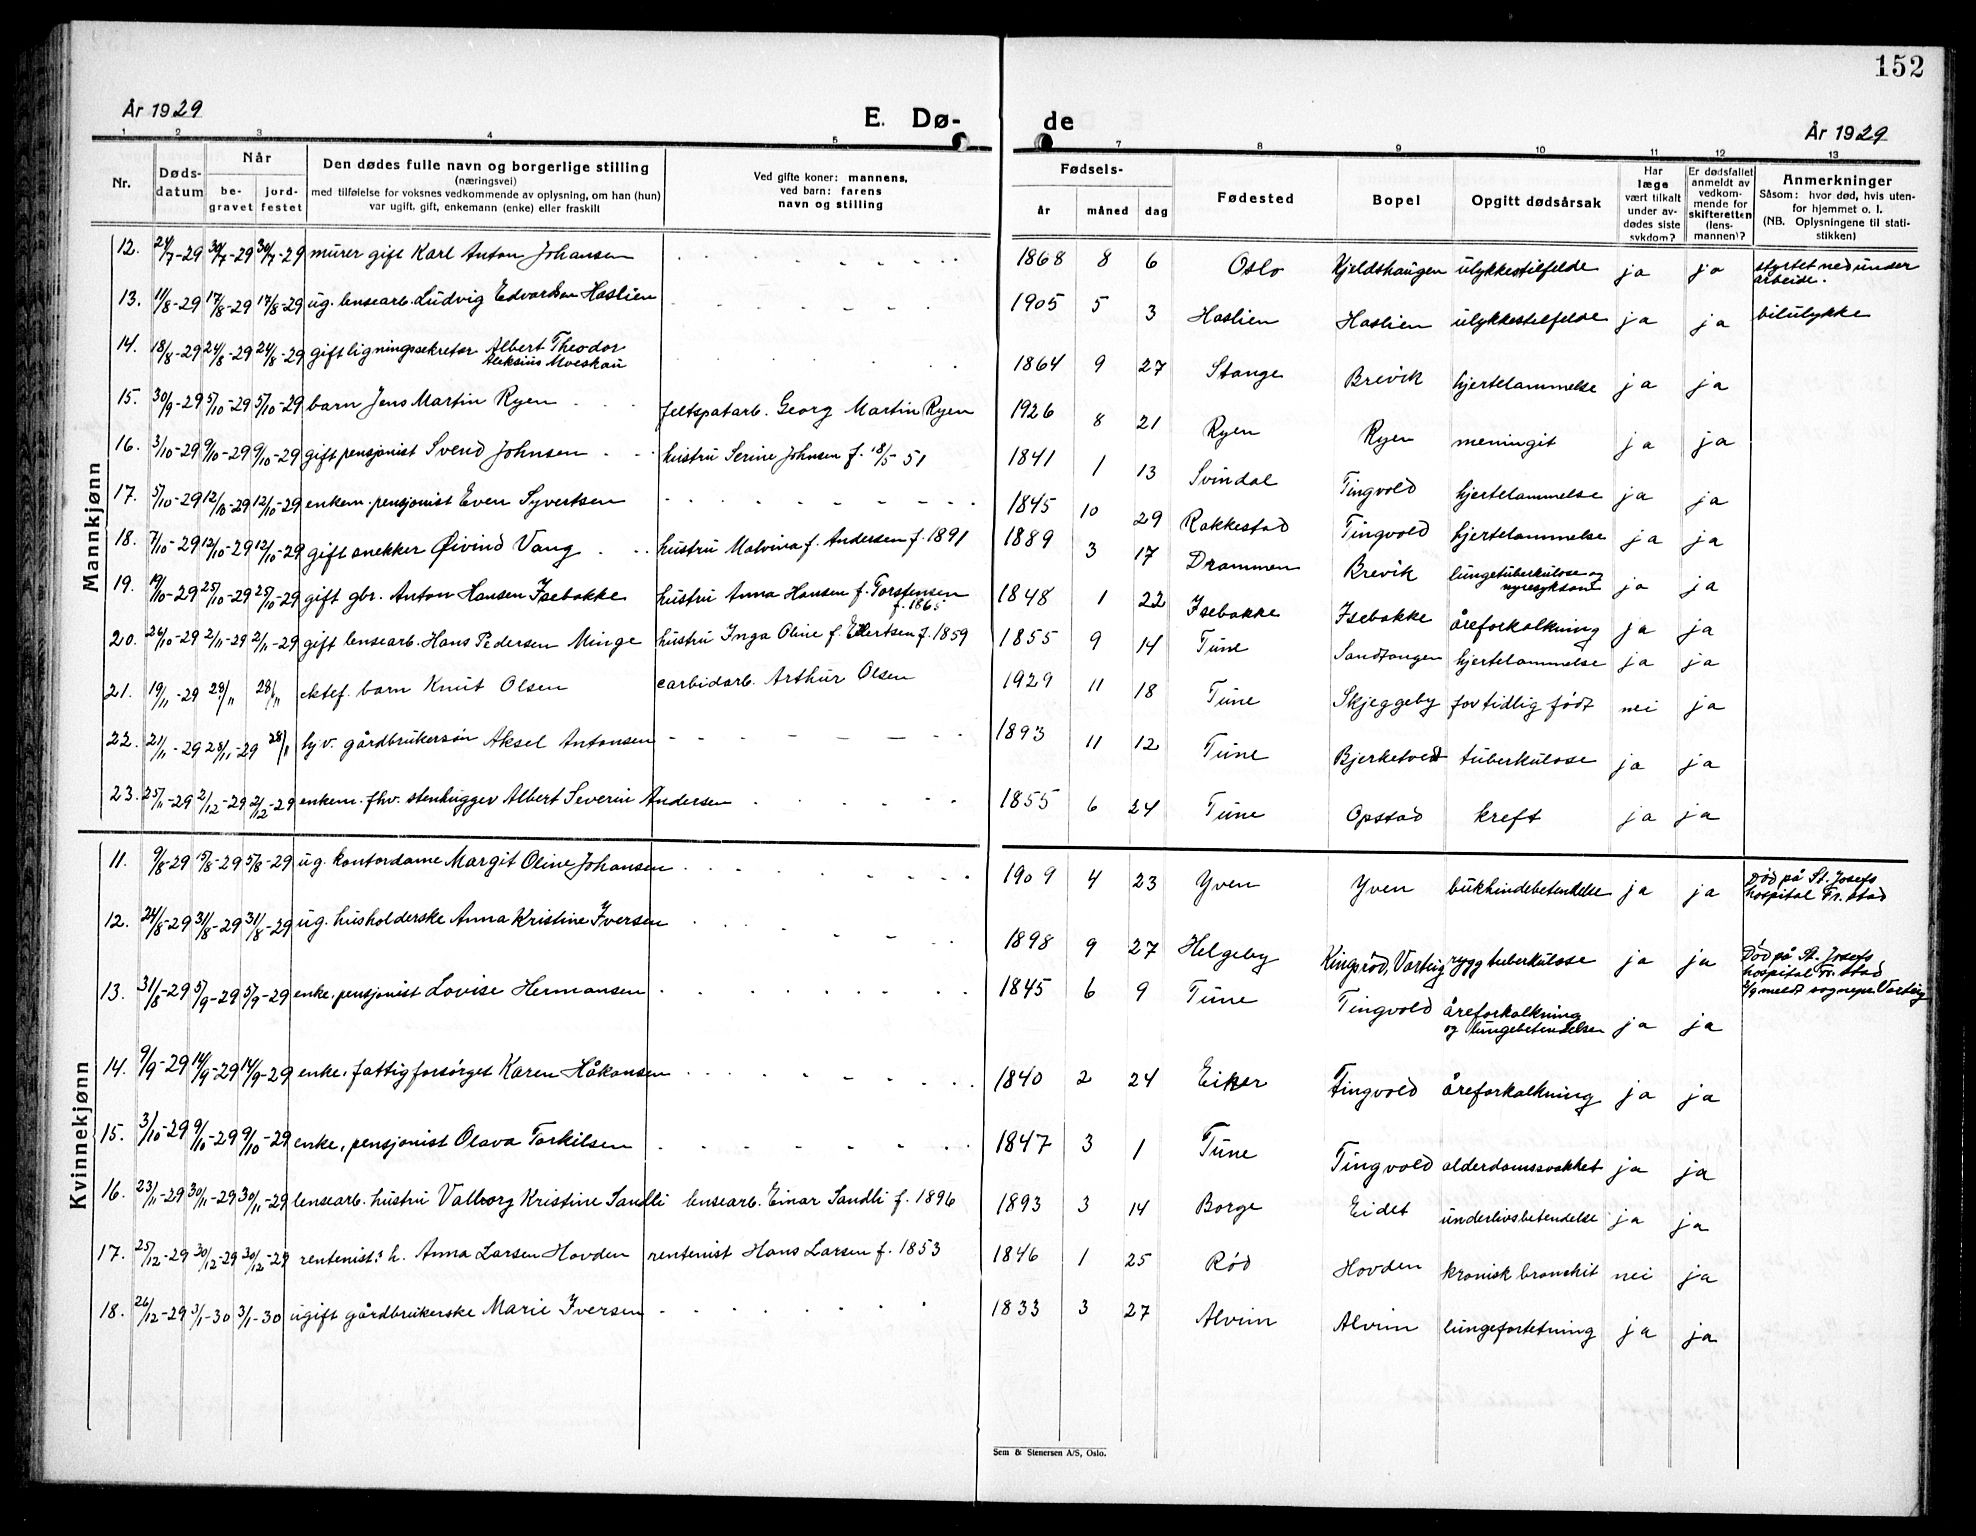 152
År 1929 E. Dø- de År 1929
1 2 3 4 5 7 8 9 10 11 12 13
Nr. Døds-datum Når be-gravet jord-festet Den dødes fulle navn og borgerlige stilling (næringsvei) med tilføielse for voksnes vedkommende av oplysning, om han (hun) var ugift, gift, enkemann (enke) eller fraskilt Ved gifte koner: mannens, ved barn: farens navn og stilling Fødsels- år måned dag Fødested Bopel Opgitt dødsårsak Har læge vært tilkalt under av-dødes siste sykdom? Er dødsfallet anmeldt av vedkom-mende for skifteretten (lens-mannen)? Anmerkninger Såsom: hvor død, hvis uten-for hjemmet o. l. (NB. Oplysningene til stati-stikken)
Mannkjønn
12. 24/7-29 30/7-29 30/7-29 murer gift Karl Anton Johansen 1868 8 6 Oslo Kjeldshaugen ulykkestilfelde ja ja styrtet ned under arbeide.
13. 11/8-29 17/8-29 17/8-29 ug. lensearb. Ludvig Edvardsen Haslien 1905 5 3 Haslien Haslien ulykkestilfelde ja ja bilulykke
14. 18/8-29 24/8-29 24/8-29 gift ligningssekretær Albert Theodor Aleksius Moeskau 1864 9 27 Stange Brevik hjertelammelse ja ja
15. 30/9-29 5/10-29 5/10-29 barn Jens Martin Ryen feltspatarb. Georg Martin Ryen 1926 8 21 Ryen Ryen meningit ja ja
16. 3/10-29 9/10-29 9/10-29 gift pensjonist Svend Johnsen hustru Serine Johnsen f. 18/5-51 1841 1 13 Svindal Tingvold hjertelammelse ja ja
17. 5/10-29 12/10-29 12/10-29 enkem. pensjonist Even Syvertsen 1845 10 29 Rakkestad Tingvold hjertelammelse ja ja
18. 7/10-29 12/10-29 12/10-29 gift snekker Øivind Vang hustru Malvina f. Andersen f. 1891 1889 3 17 Drammen Brevik lungetuberkulose og nyresykdom ja ja
19. 19/10-29 25/10-29 25/10-29 gift gbr. Anton Hansen Isebakke hustru Anna Hansen f. Torstensen f. 1865 1848 1 22 Isebakke Isebakke åreforkalkning ja ja
20. 26/10-29 2/11-29 2/11-29 gift lensearb. Hans Pedersen Minge hustru Inga Oline f. Eilertsen f. 1859 1855 9 14 Tune Sandtangen hjertelammelse ja ja
21. 19/11-29 28/11 28/11 ektef. barn Knut Olsen carbidarb. Arthur Olsen 1929 11 18 Tune Skjeggeby for tidlig født nei ja
22. 21/11-29 28/11-29 28/11 hjv. gårdbrukersøn Aksel Antonsen 1893 11 12 Tune Bjerketvedt tuberkulose ja ja
23. 25/11-29 2/12-29 2/12-29 enkem. fhv. stenhugger Albert Severin Andersen 1855 6 24 Tune Opstad kreft ja ja
Kvinnekjønn
11. 9/8-29 15/8-29 15/8-29 ug. kontordame Margit Oline Johansen 1909 4 23 Yven Yven bukhindebetendelse ja ja Død på St. Josefs hospital Fr.stad
12. 24/8-29 31/8-29 31/8-29 ug. husholderske Anna Kristine Iversen 1898 9 27 Helgeby Kingsrød, Varteig ryggtuberkulose ja ja Død på St. Josefs hospital Fr.stad meldt sognepr. Varteig
13. 31/8-29 5/9-29 5/9-29 enke, pensjonist Lovise Hermansen 1845 6 9 Tune Tingvold åreforkalkning og lungebetendelse ja ja
14. 9/9-29 14/9-29 14/9-29 enke, fattigforsørget Karen Håkonsen 1840 2 24 Eiker Tingvold åreforkalkning ja ja
15. 3/10-29 9/10-29 9/10-29 enke, pensjonist Olava Torkilsen 1847 3 1 Tune Tingvold alderdomssvakhet ja ja
16. 23/11-29 30/11-29 30/11-29 lensearb. hustru Valborg Kristine Sandli lensearb. Einar Sandli f. 1896 1893 3 14 Borge Eidet underlivsbetendelse ja ja
17. 25/12-29 30/12-29 30/12-29 rentenist's h. Anna Larsen Hovden rentenist Hans Larsen f. 1853 1846 1 25 Rød Hovden kronisk bronchit nei ja
18. 26/12-29 3/1-30 3/1-30 ugift gårdbrukerske Marie Iversen 1833 3 27 Alvim Alvim lungefortetning ja ja
Sem & Stenersen A/S, Oslo.